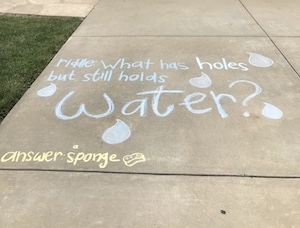 riddle: What has holes
but still holds
Water?
answer: sponge